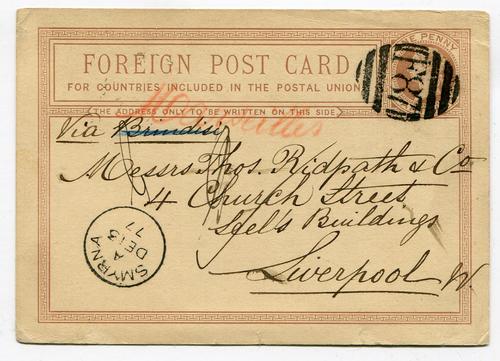 ONE PENNY
FOREIGN POST CARD
FOR COUNTRIES INCLUDED IN THE POSTAL UNION
THE ADDRESS ONLY TO BE WRITTEN ON THIS SIDE
F87
Via Brindisi
Messrs Thos. Ridpath & Co
4 Church Street
Seel's Buildings
Liverpool
SMYRNA
A
DE 13
77